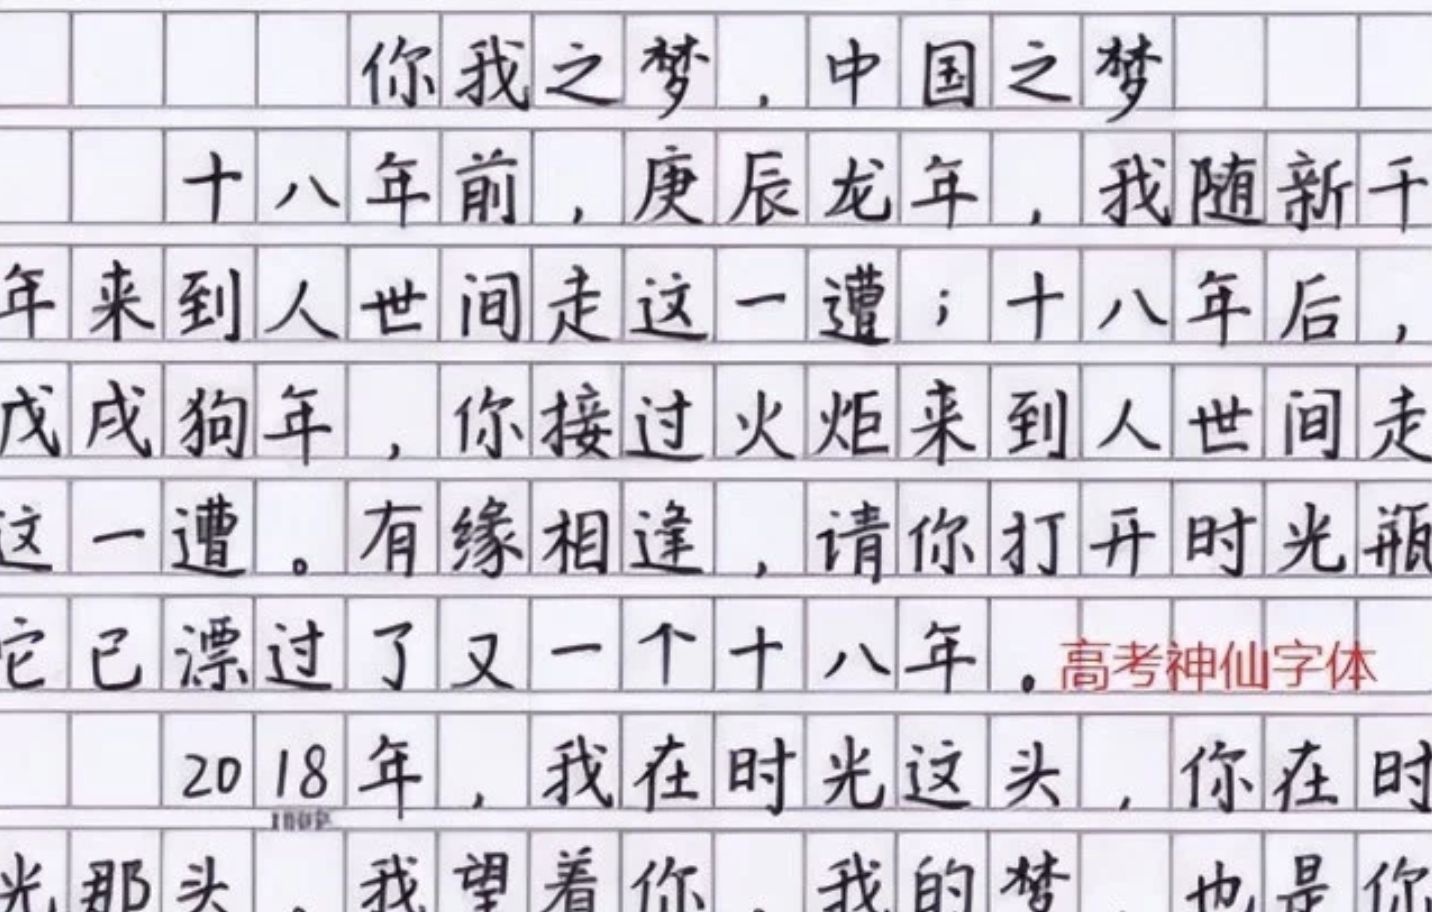 你我之梦，中国之梦
十八年前，庚辰龙年，我随新千
年来到人世间走这一遭；十八年后，
戊戌狗年，你接过火炬来到人世间走
这一遭。有缘相逢，请你打开时光瓶
它已漂过了又一个十八年。
高考神仙字体
2018年，我在时光这头，你在时
光那头。我望着你，我的梦，也是你